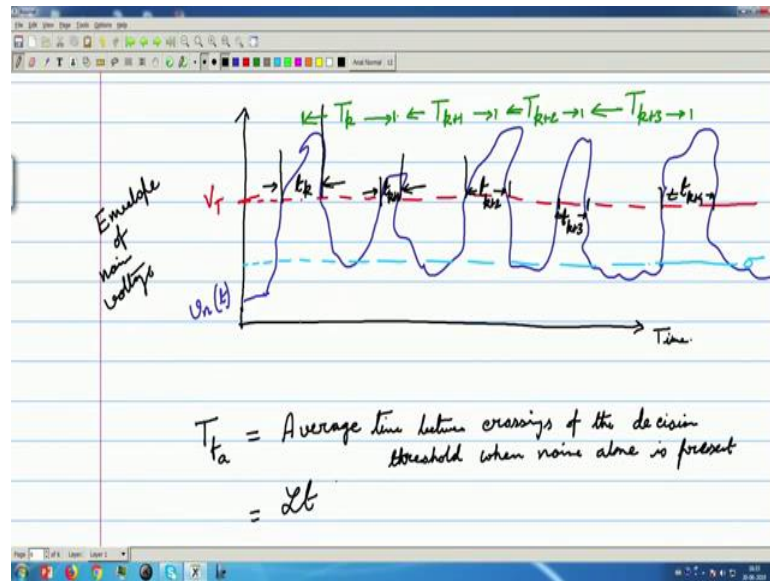 File Edit View Page Tools Options Help
Arial Normal 12
T_k T_{k+1} T_{k+2} T_{k+3}
t_k t_{k+1} t_{k+2} t_{k+3} t_{k+4}
V_T
Envelope
of
noise
voltage
σ
v_n(t)
Time
T_{fa} = Average time between crossings of the decision
threshold when noise alone is present
= Lt
Page of 6 Layer: Layer 1